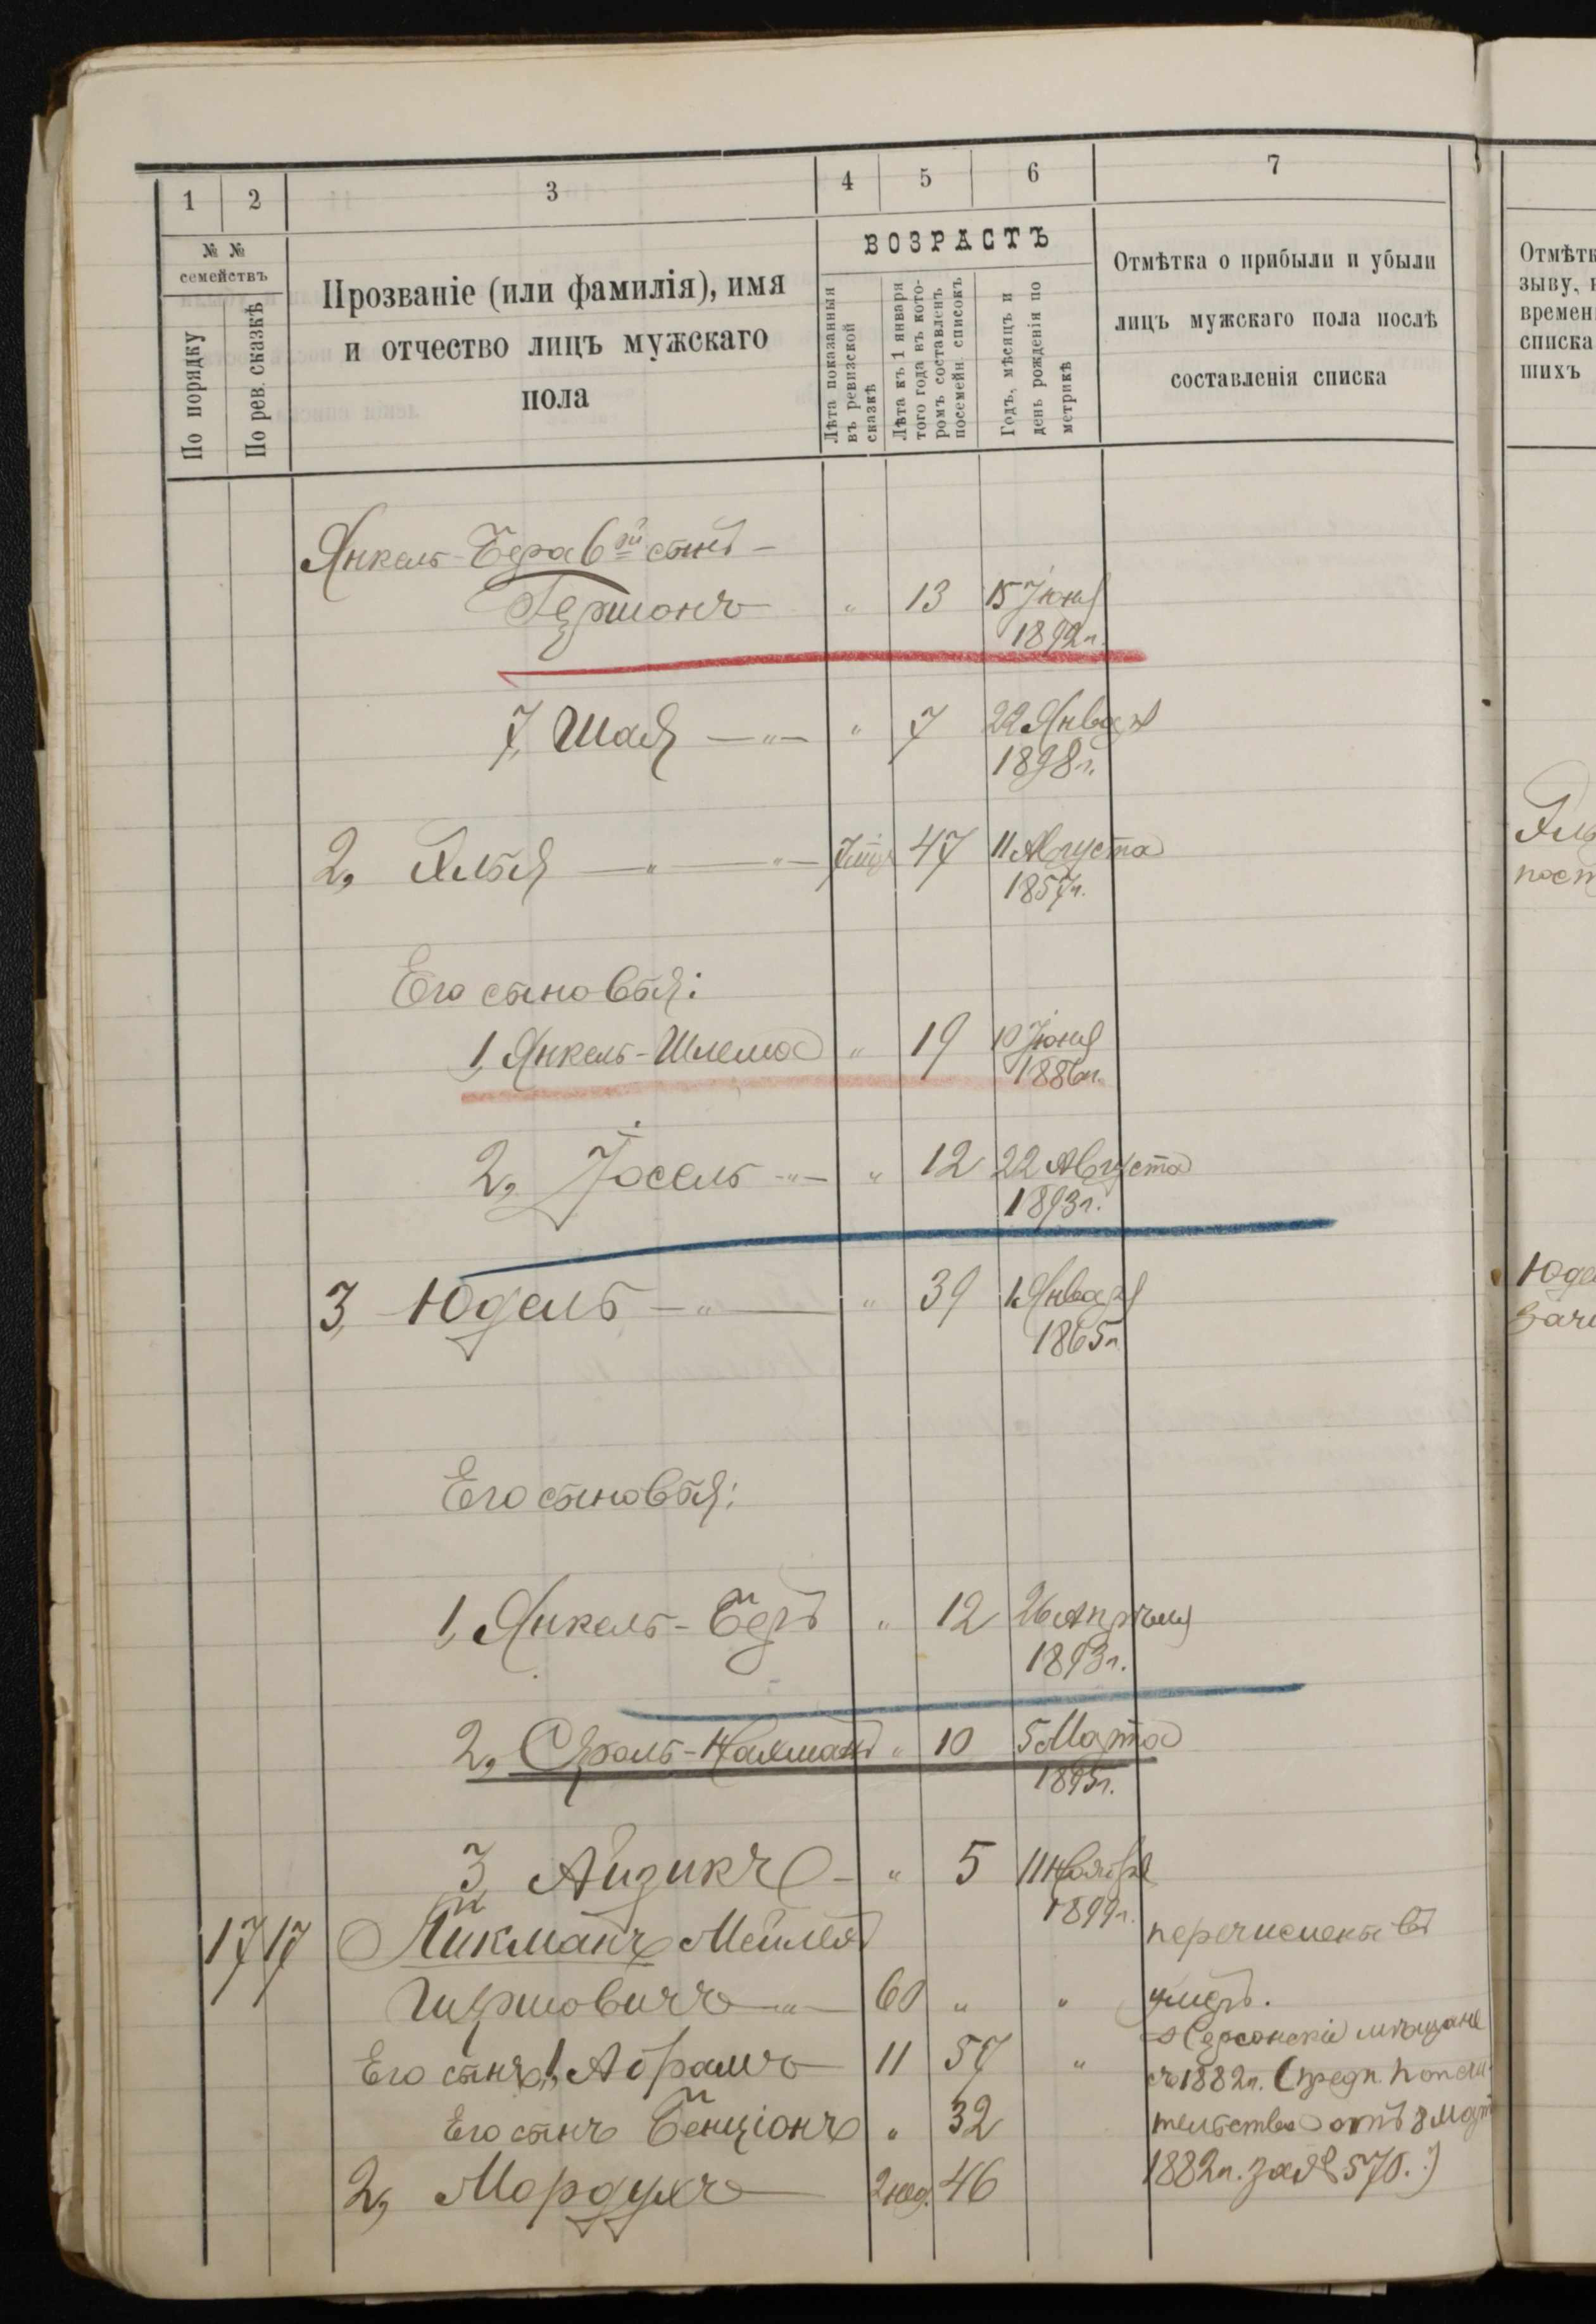 1 2 3 4 5 6 7
№ № семействъ
По порядку
По рев. сказкѣ
Прозваніе (или фамилія), имя
и отчество лицъ мужскаго
пола
ВОЗРАСТЪ
Лѣта показанныя
въ ревизской
сказкѣ
Лѣта къ 1 января
того года въ кото-
ромъ составленъ
посемейн. списокъ
Годъ, мѣсяцъ и
день рожденія по
метрикѣ
Отмѣтка о прибыли и убыли
лицъ мужскаго пола послѣ
составленія списка
Янкель-Бера 6й сынъ -
Гершонъ " 13 15 Іюня
1892 г.
7, Шая — " — " 7 22 Января
1898 г.
2, Элья — " — " — 47 11 Августа
1857 г.
Его сыновья:
1, Янкель-Шлема " 19 10 Іюня
1886 г.
2, Іосель - " - " 12 22 Августа
1893 г.
3, Юдель — " — " 39 1 Января
1865 г.
Его сыновья:
1, Янкель-Беръ " 12 26 Апрѣля
1893 г.
2, Сроль-Калманъ " 10 5 Марта
1895 г.
3, Айзикъ - " 5 11 Ноября
1899 г.
17 17 Ликманъ Мейлех
перечислены въ
Гиршовичъ - " - 60 " " умеръ.
Херсонскіе мѣщане
Его сынъ 1, Абрамъ 11 57 "
съ 1882 г. (предп. попечи-
Его сынъ Бенціонъ " 32
тельства отъ 8 март
2, Мордухъ 2 нед. 46
1882 г. за № 570.)
Отмѣтк
зыву,
времен
списка
шихъ
Эль
пост
Юде
зачи